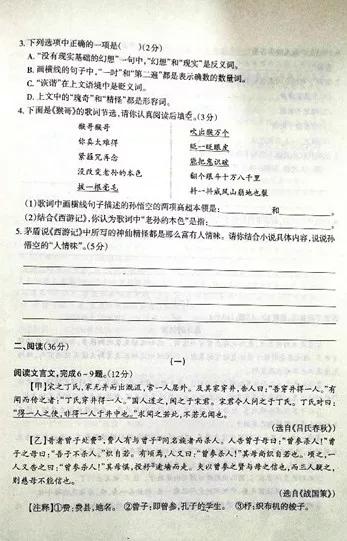 3. 下列选项中正确的一项是(    )(2分)
A. “没有现实基础的幻想”一句中,“幻想”和“现实”是反义词。
B. 画横线的句子中,“一时”和“第二遍”都是表示确数的数量词。
C. “诙谐”在上文语境中是贬义词。
D. 上文中的“瑰奇”和“精怪”都是形容词。
4. 下面是《猴哥》的歌词节选,请你认真阅读后填空。(3分)
猴哥猴哥
你真太难得
紧箍咒再念
没改变老孙的本色
拔一根毫毛
吹出猴万个
眨一眨眼皮
能把鬼识破
翻个跟斗十万八千里
抖一抖威风山崩地也裂
(1)歌词中画横线句子描述的孙悟空的两项高超本领是: 和 。
(2)结合《西游记》,你认为歌词中“老孙的本色”是指: 。
5. 茅盾说《西游记》中所写的神仙精怪都是那么富有人情味。请你结合小说具体内容,说说孙
悟空的“人情味”。(5分)
二、阅读(36分)
(一)
阅读文言文,完成6－9题。(12分)
【甲】宋之丁氏,家无井而出溉汲,常一人居外。及其家穿井,告人曰:“吾穿井得一人。”有
闻而传之者:“丁氏穿井得一人。”国人道之,闻之于宋君。宋君令人问之于丁氏。丁氏对曰:
“得一人之使,非得一人于井中也。”求闻之若此,不若无闻也。
(选自《吕氏春秋》)
【乙】昔者曾子处费①,费人有与曾子②同名族者而杀人。人告曾子母曰:“曾参杀人!”曾
子之母曰:“吾子不杀人。”织自若。有顷焉,人又曰:“曾参杀人!”其母尚织自若也。顷之,一
人又告之曰:“曾参杀人!”其母惧,投杼③逾墙而走。夫以曾参之贤与母之信也,而三人疑之,
则慈母不能信也。
(选自《战国策》)
【注释】①费:费县,地名。 ②曾子:即曾参,孔子的学生。 ③杼:织布机的梭子。